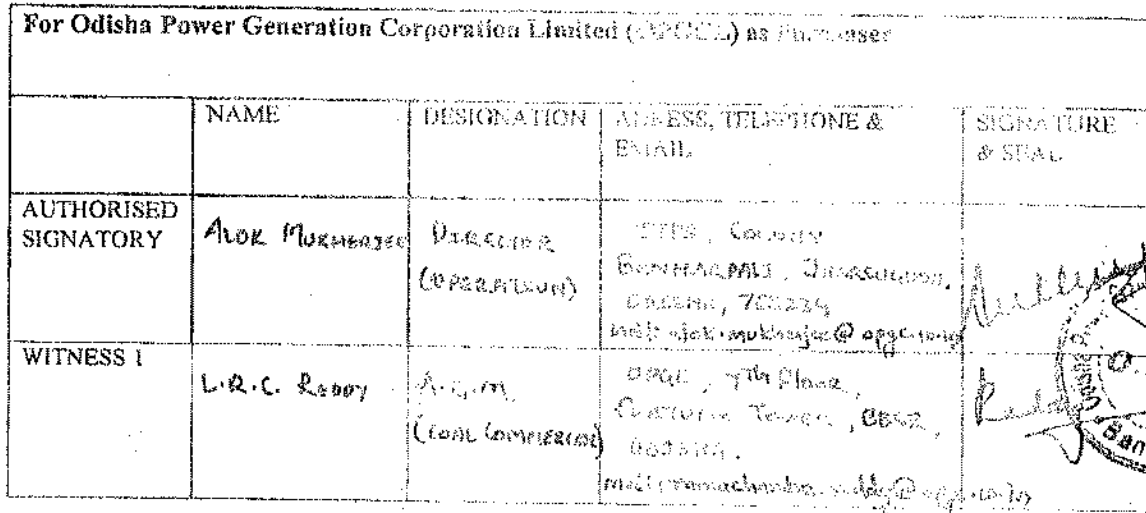 For Odisha Power Generation Corporation Limited (OPGCL) as Purchaser
NAME
DESIGNATION
ADDRESS, TELEPHONE &
EMAIL
SIGNATURE
& SEAL
AUTHORISED
SIGNATORY
ALOK MUKHERJEE
DIRECTOR
(OPERATION)
ITPS, COLONY
BANHARPALI, JHARSUGUDA,
ODISHA,
mail:
WITNESS 1
L.R.C. REDDY
A.G.M
(COAL COMMERCIAL)
OPGC, 7th Floor,
Tower, BBSR,
ODISHA.
mail: